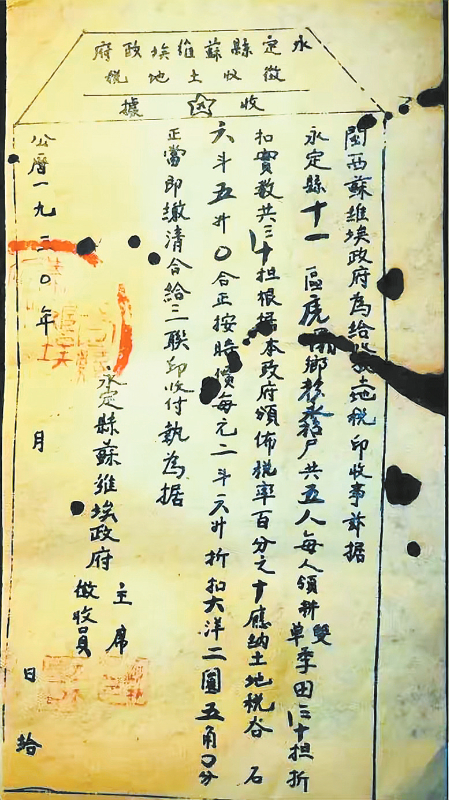 永定縣蘇維埃政府
徵收土地稅
收據
閩西蘇維埃政府為給收土地稅印收事訴据
永定縣十一區虎鄉户共五人每人領耕雙單季田三十担折
扣實數共三十担根据本政府頒佈稅率百分之十應納土地稅谷 石
六斗五升〇合正按時價每元二斗六升折扣大洋二圓五角〇分
正當即繳清合給三聯印收付執為据
永定縣蘇維埃政府 主席
徵收員
公曆一九三〇年 月 日 给